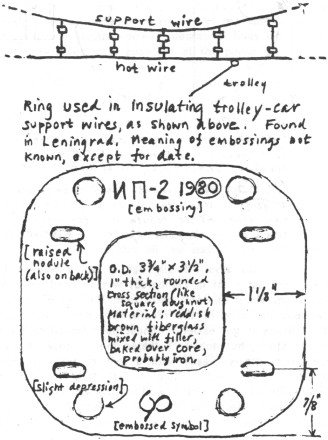 support wire
hot wire
trolley
Ring used in Insulating trolley-car
support wires, as shown above. Found
in Leningrad. Meaning of embossings not
known, except for date.
ИП-2 1980
[embossing]
[raised
nodule
(also on back)]
O.D. 3¾" x 3½",
1" thick, rounded
cross section (like
square doughnut)
Material: reddish
brown fiberglass
mixed with filler,
baked over core,
probably iron.
1⅛"
[slight depression]
7/8"
[embossed symbol]